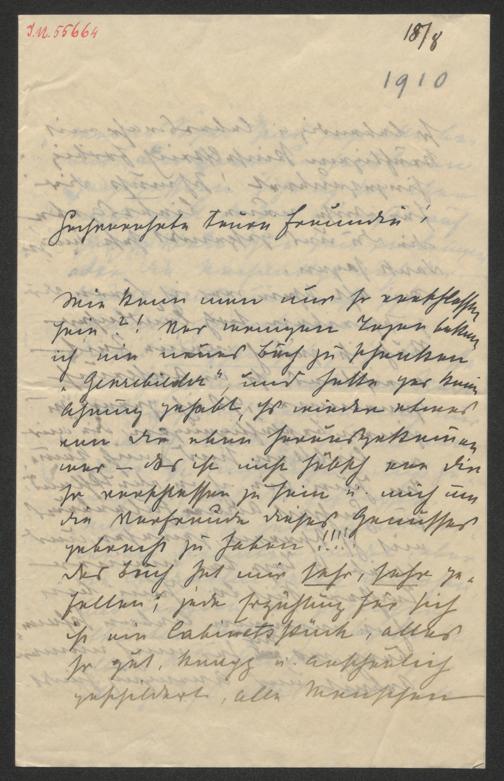 I.N. 55664
18/8
1910
Hochverehrte teure Freundin!
Wie kann man nur so verschlossen
sein?! Vor wenigen Tagen bekam
ich ein neues Buch zu schenken
„Genrebilder“, und hatte gar keine
Ahnung gehabt, daß wieder etwas
von Ihnen herausgekommen
war – das ist nicht hübsch von Ihnen
so verschlossen zu sein u. mich um
die Vorfreude dieses Genusses
gebracht zu haben!!!
Das Buch hat mir sehr, sehr ge-
fallen; jede Erzählung für sich
ist ein Cabinetsstück, alles
so gut, knapp u. anschaulich
geschildert, alle Menschen